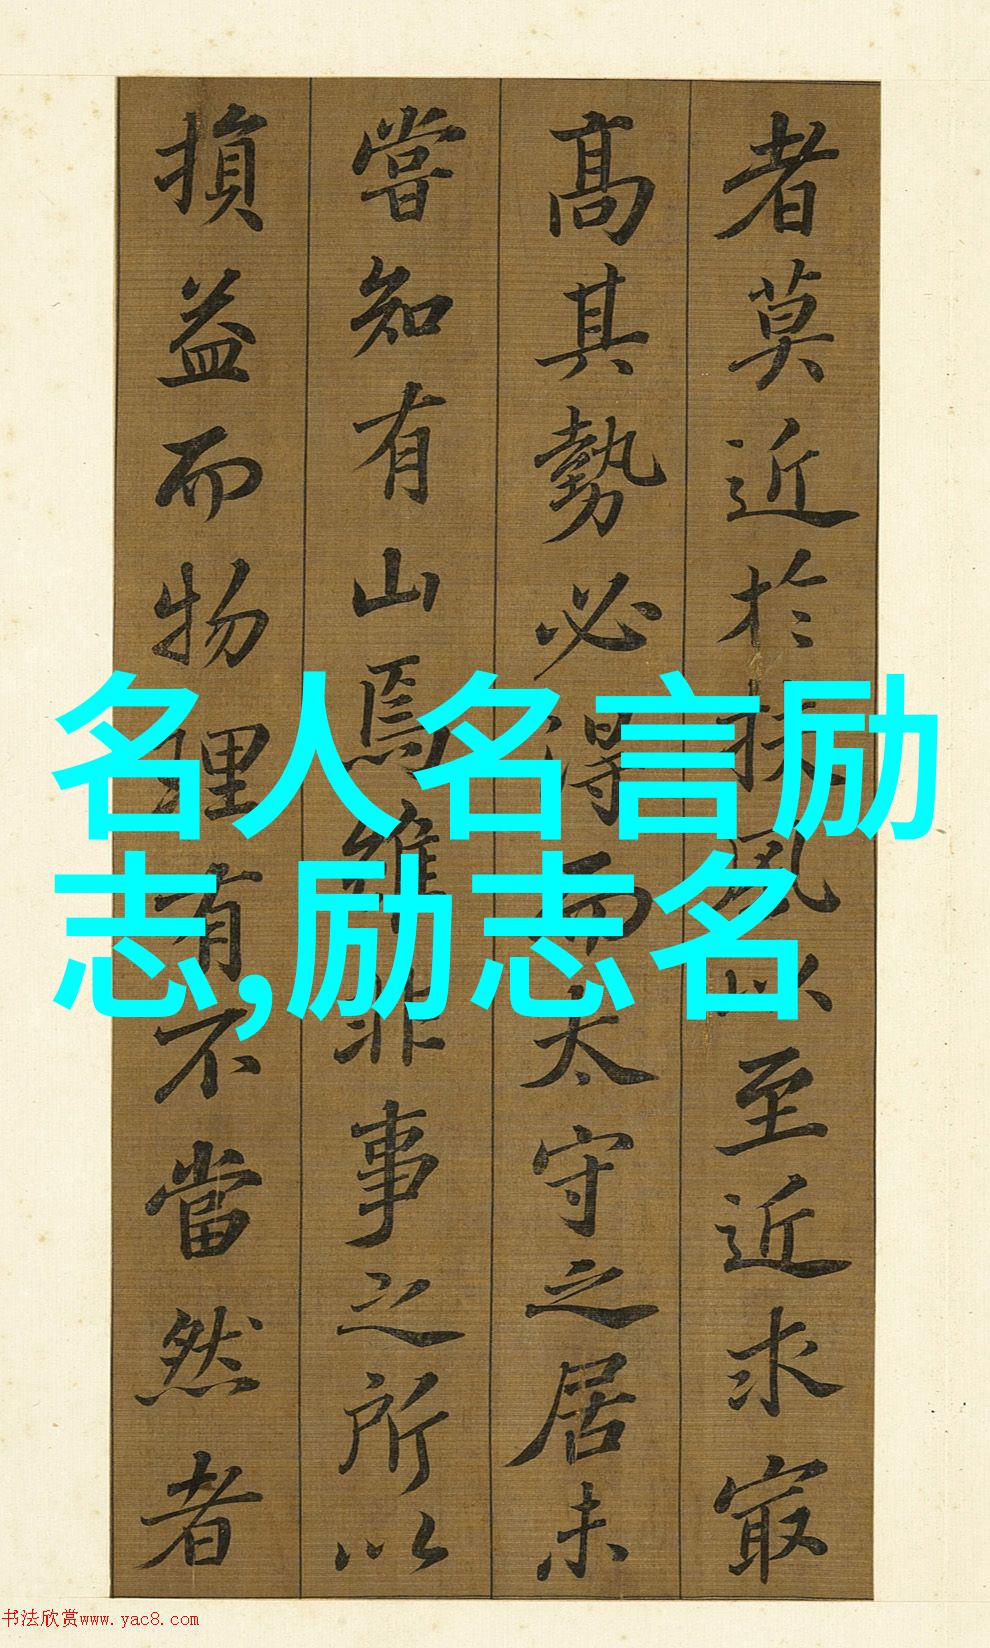 者莫近於扶風以至近求最
高其勢必得而太守之居未
嘗知有山焉雖非事之所以
損益而物理有不當然者
名人名言励
志,励志名
书法欣赏www.yac8.com